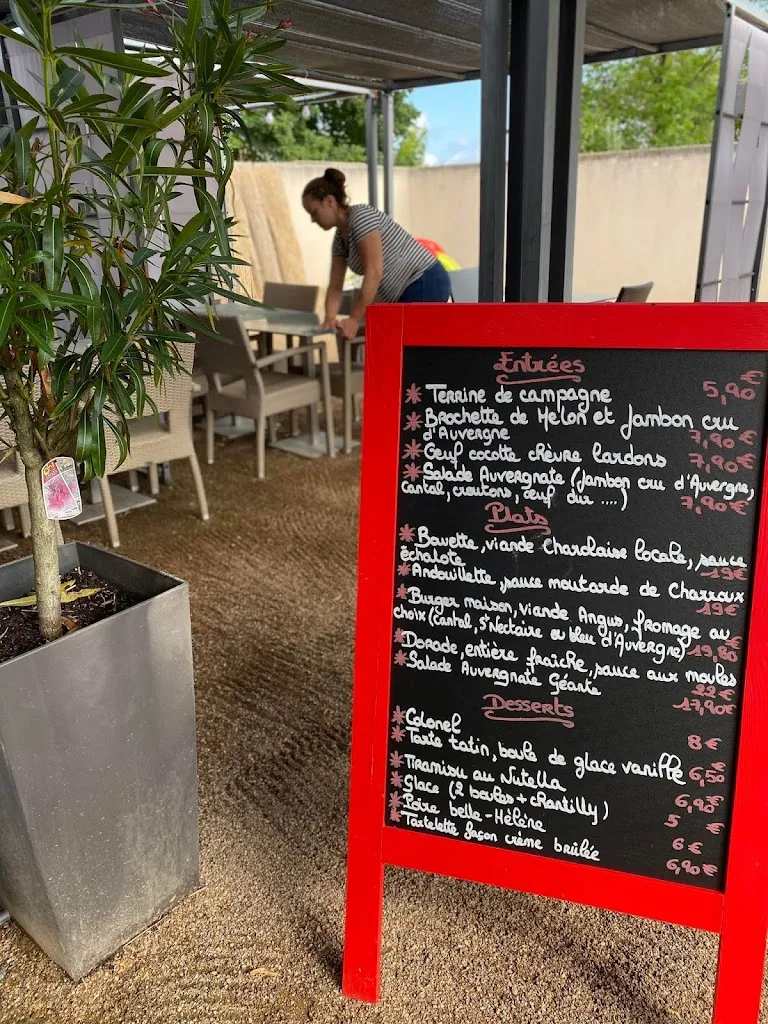 Entrées
* Terrine de campagne 5,90€
* Brochette de Melon et Jambon cru
d'Auvergne 7,90€
* Œuf cocotte chèvre lardons 7,90€
* Salade Auvergnate (Jambon cru d'Auvergne,
Cantal, croutons, œuf dur ....) 7,90€
Plats
* Bavette, viande Charolaise locale, sauce
échalote 19€
* Andouillette, sauce moutarde de Charroux
19€
* Burger maison, viande Angus, fromage au
choix (Cantal, St Nectaire ou bleu d'Auvergne) 19,80€
* Dorade, entière fraîche, sauce aux moules
22€
* Salade Auvergnate Géante 17,90€
Desserts
* Colonel 8€
* Tarte tatin, boule de glace vanille 6,50€
* Tiramisu au Nutella 6,90€
* Glace (2 boules + chantilly) 5 €
* Poire belle-Hélène 6 €
* Tartelette façon crème brûlée 6,90€